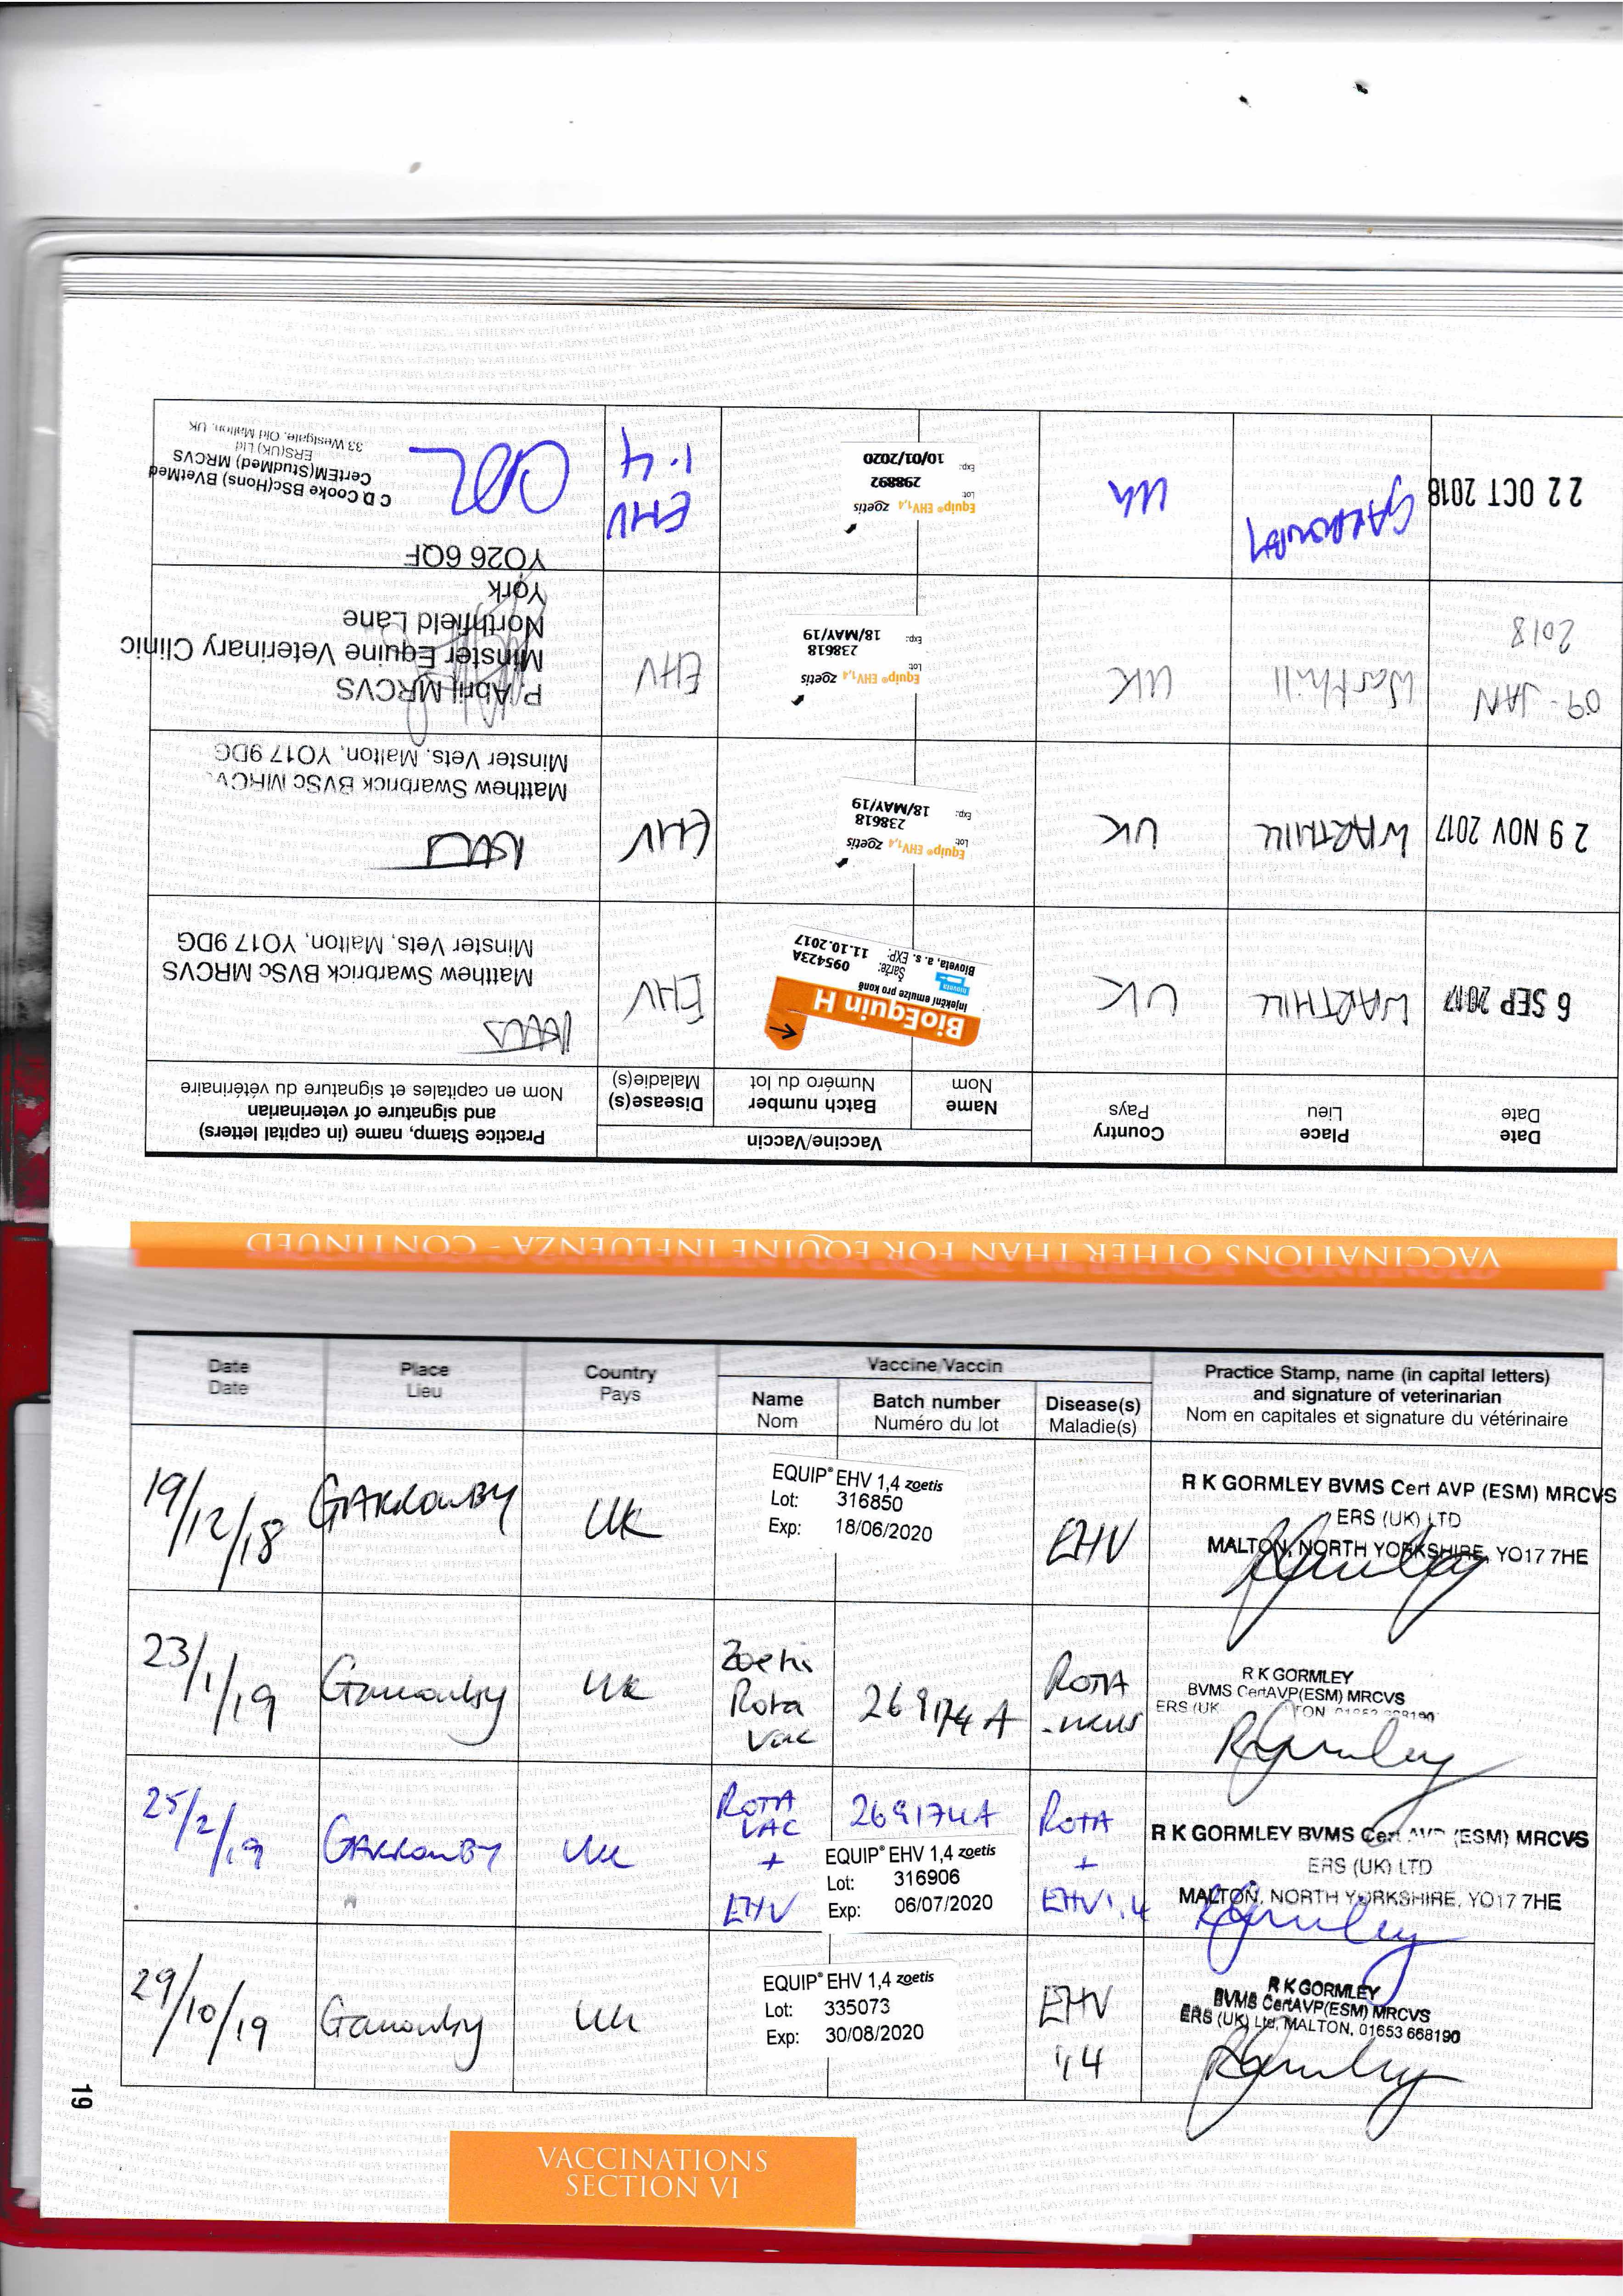 VACCINATIONS OTHER THAN FOR EQUINE INFLUENZA - CONTINUED
Date
Date
Place
Lieu
Country
Pays
Vaccine/Vaccin
Name
Nom
Batch number
Numéro du lot
Disease(s)
Maladie(s)
Practice Stamp, name (in capital letters)
and signature of veterinarian
Nom en capitales et signature du vétérinaire
6 SEP 2017
WARTHILL
UK
BioEquin H
Injekční emulze pro koně
bioveta
Šarže: 095423A
Bioveta, a. s. EXP: 11.10.2017
EHV
Matthew Swarbrick BVSc MRCVS
Minster Vets, Malton, YO17 9DG
29 NOV 2017
WARTHILL
UK
Equip® EHV1,4 zoetis
Lot: 238618
Exp: 18/MAY/19
EHV
Matthew Swarbrick BVSc MRCVS
Minster Vets, Malton, YO17 9DG
09 - JAN
2018
Warthill
UK
Equip® EHV1,4 zoetis
Lot: 238618
Exp: 18/MAY/19
EHV
P. Abril MRCVS
Minster Equine Veterinary Clinic
Northfield Lane
York
YO26 6QF
22 OCT 2018
GARROWBY
UK
Equip® EHV1,4 zoetis
Lot: 298892
Exp: 10/01/2020
EHV
1.4
C D Cooke BSc(Hons) BVetMed
CertEM(StudMed) MRCVS
ERS(UK) Ltd
33 Westgate, Old Malton, UK
Date
Date
Place
Lieu
Country
Pays
Vaccine/Vaccin
Name
Nom
Batch number
Numéro du lot
Disease(s)
Maladie(s)
Practice Stamp, name (in capital letters)
and signature of veterinarian
Nom en capitales et signature du vétérinaire
19/12/18
GARROWBY
UK
EQUIP® EHV 1,4 zoetis
Lot: 316850
Exp: 18/06/2020
EHV
R K GORMLEY BVMS Cert AVP (ESM) MRCVS
ERS (UK) LTD
MALTON, NORTH YORKSHIRE, YO17 7HE
23/1/19
Garrowby
UK
Zoetis
Rota
vac
269174A
ROTA
R K GORMLEY
BVMS CertAVP(ESM) MRCVS
ERS (UK
25/2/19
GARROWBY
UK
ROTA
VAC
+
EHV
269174A
EQUIP® EHV 1,4 zoetis
Lot: 316906
Exp: 06/07/2020
ROTA
+
EHV1,4
R K GORMLEY BVMS Cert AVP (ESM) MRCVS
ERS (UK) LTD
MALTON, NORTH YORKSHIRE, YO17 7HE
29/10/19
Garrowby
UK
EQUIP® EHV 1,4 zoetis
Lot: 335073
Exp: 30/08/2020
EHV
1,4
R K GORMLEY
BVMS CertAVP(ESM) MRCVS
ERS (UK) Ltd, MALTON, 01653 668190
19
VACCINATIONS
SECTION VI